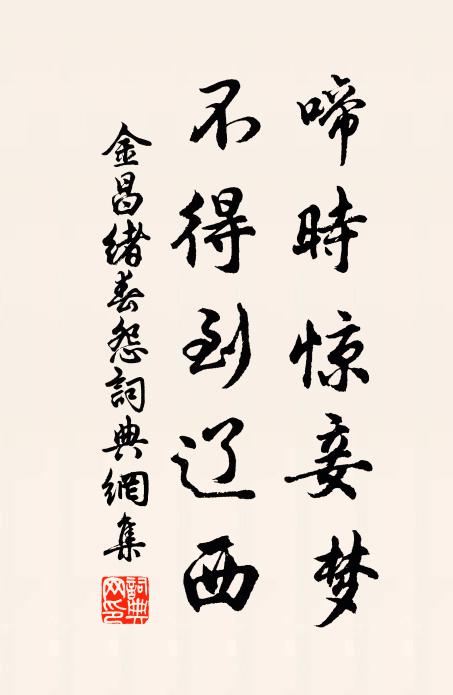 啼時惊妾梦
不得到辽西
金昌緒春怨詞典網集
詞典网印